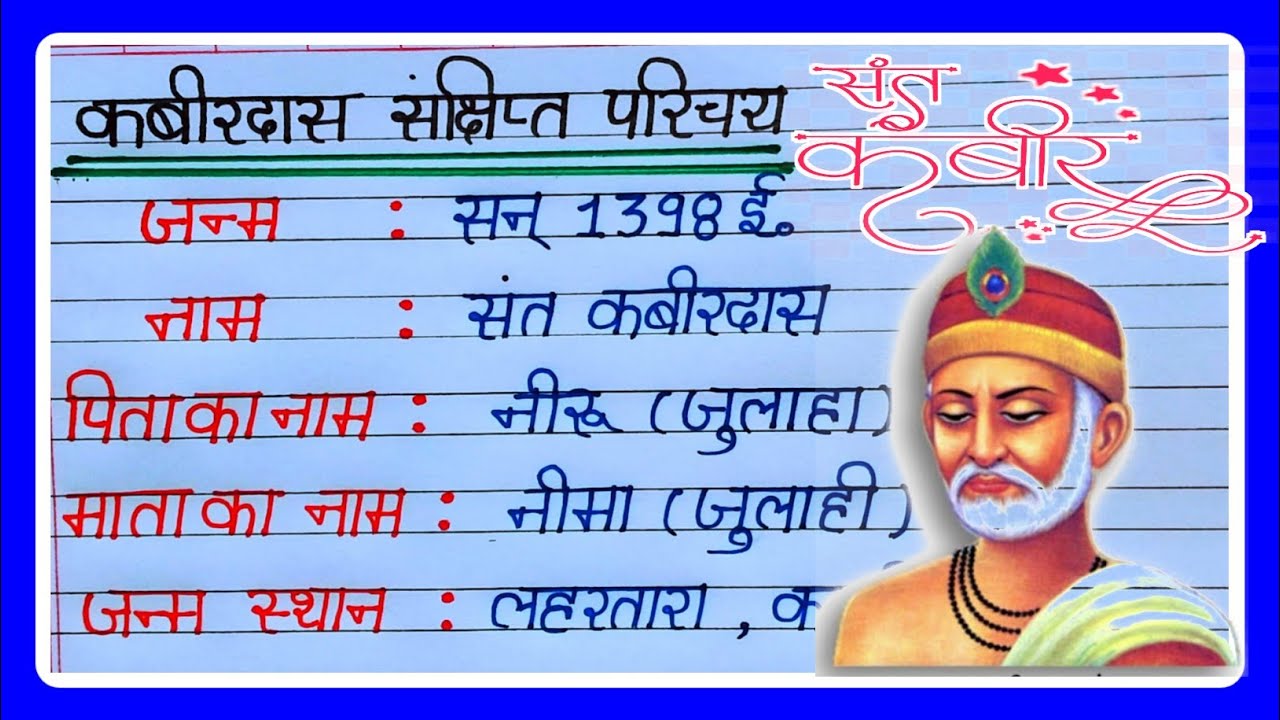 कबीरदास संक्षिप्त परिचय
संत
कबीर
जन्म : सन् 1398 ई.
नाम : संत कबीरदास
पिता का नाम : नीरू (जुलाहा)
माता का नाम : नीमा (जुलाही)
जन्म स्थान : लहरतारा ,